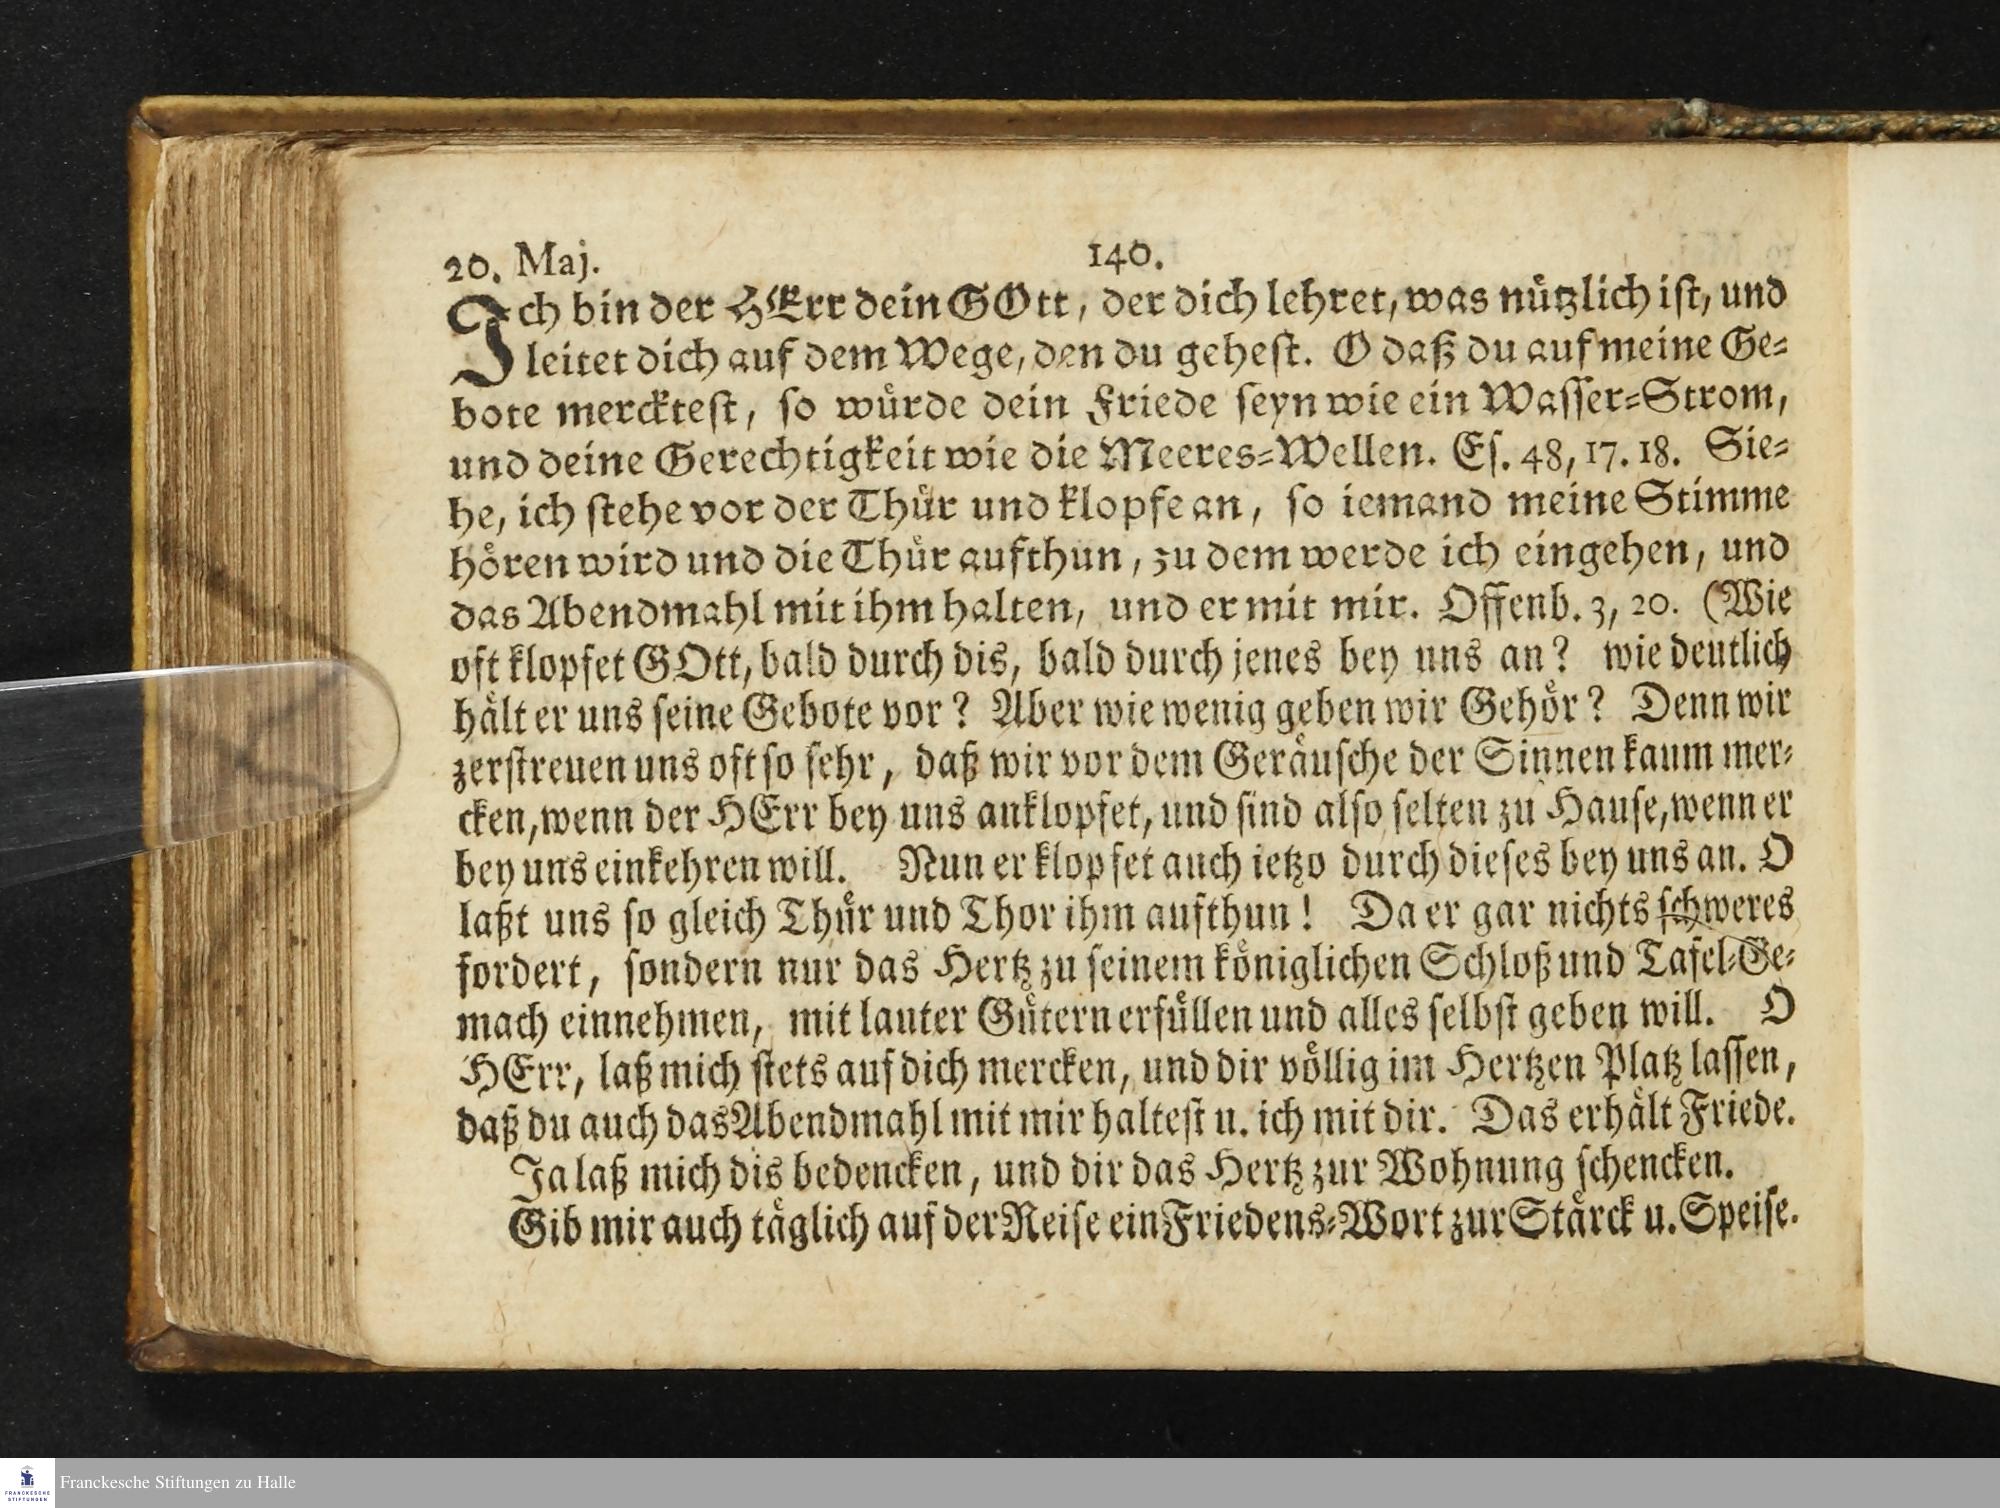 20. Maj. 140.
Ich bin der HErr dein GOtt, der dich lehret, was nützlich ist, und
leitet dich auf dem Wege, den du gehest. O daß du auf meine Ge-
bote mercktest, so würde dein Friede seyn wie ein Wasser-Strom,
und deine Gerechtigkeit wie die Meeres-Wellen. Es. 48, 17. 18. Sie-
he, ich stehe vor der Thür und klopfe an, so iemand meine Stimme
hören wird und die Thür aufthun, zu dem werde ich eingehen, und
das Abendmahl mit ihm halten, und er mit mir. Offenb. 3, 20. (Wie
oft klopfet GOtt, bald durch dis, bald durch jenes bey uns an? wie deutlich
hält er uns seine Gebote vor? Aber wie wenig geben wir Gehör? Denn wir
zerstreuen uns oft so sehr, daß wir vor dem Geräusche der Sinnen kaum mer-
cken, wenn der HErr bey uns anklopfet, und sind also selten zu Hause, wenn er
bey uns einkehren will. Nun er klopfet auch ietzo durch dieses bey uns an. O
laßt uns so gleich Thür und Thor ihm aufthun! Da er gar nichts schweres
fordert, sondern nur das Hertz zu seinem königlichen Schloß und Tafel-Ge-
mach einnehmen, mit lauter Gütern erfüllen und alles selbst geben will. O
HErr, laß mich stets auf dich mercken, und dir völlig im Hertzen Platz lassen,
daß du auch das Abendmahl mit mir haltest u. ich mit dir. Das erhält Friede.
Ja laß mich dis bedencken, und dir das Hertz zur Wohnung schencken.
Gib mir auch täglich auf der Reise ein Friedens-Wort zur Stärck u. Speise.
FRANCKESCHE
STIFTUNGEN
Franckesche Stiftungen zu Halle